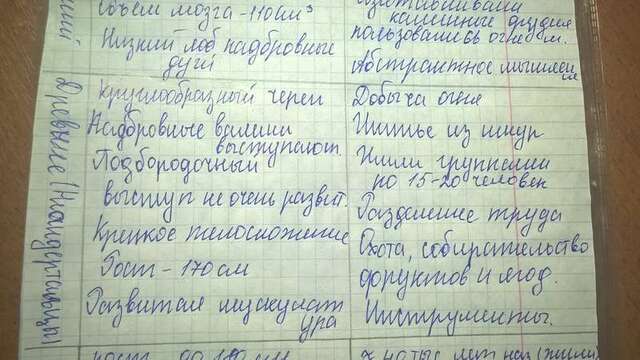 Объём мозга - 110 см³
Низкий лоб надбровные
дуги
каменные орудия
пользовались огнём.
Абстрактное мышление
Древние (Неандертальцы)
Круглообразный череп
Надбровные валики
выступают.
Подбородочный
выступ не очень развит.
Крепкое телосложение
Рост - 170 см
Развитая мускулат
ура
Добыча огня
Шитьё из шкур
Жили группами
по 15-20 человек
Разделение труда
Охота, собирательство
форуктов и ягод.
Инструменты.